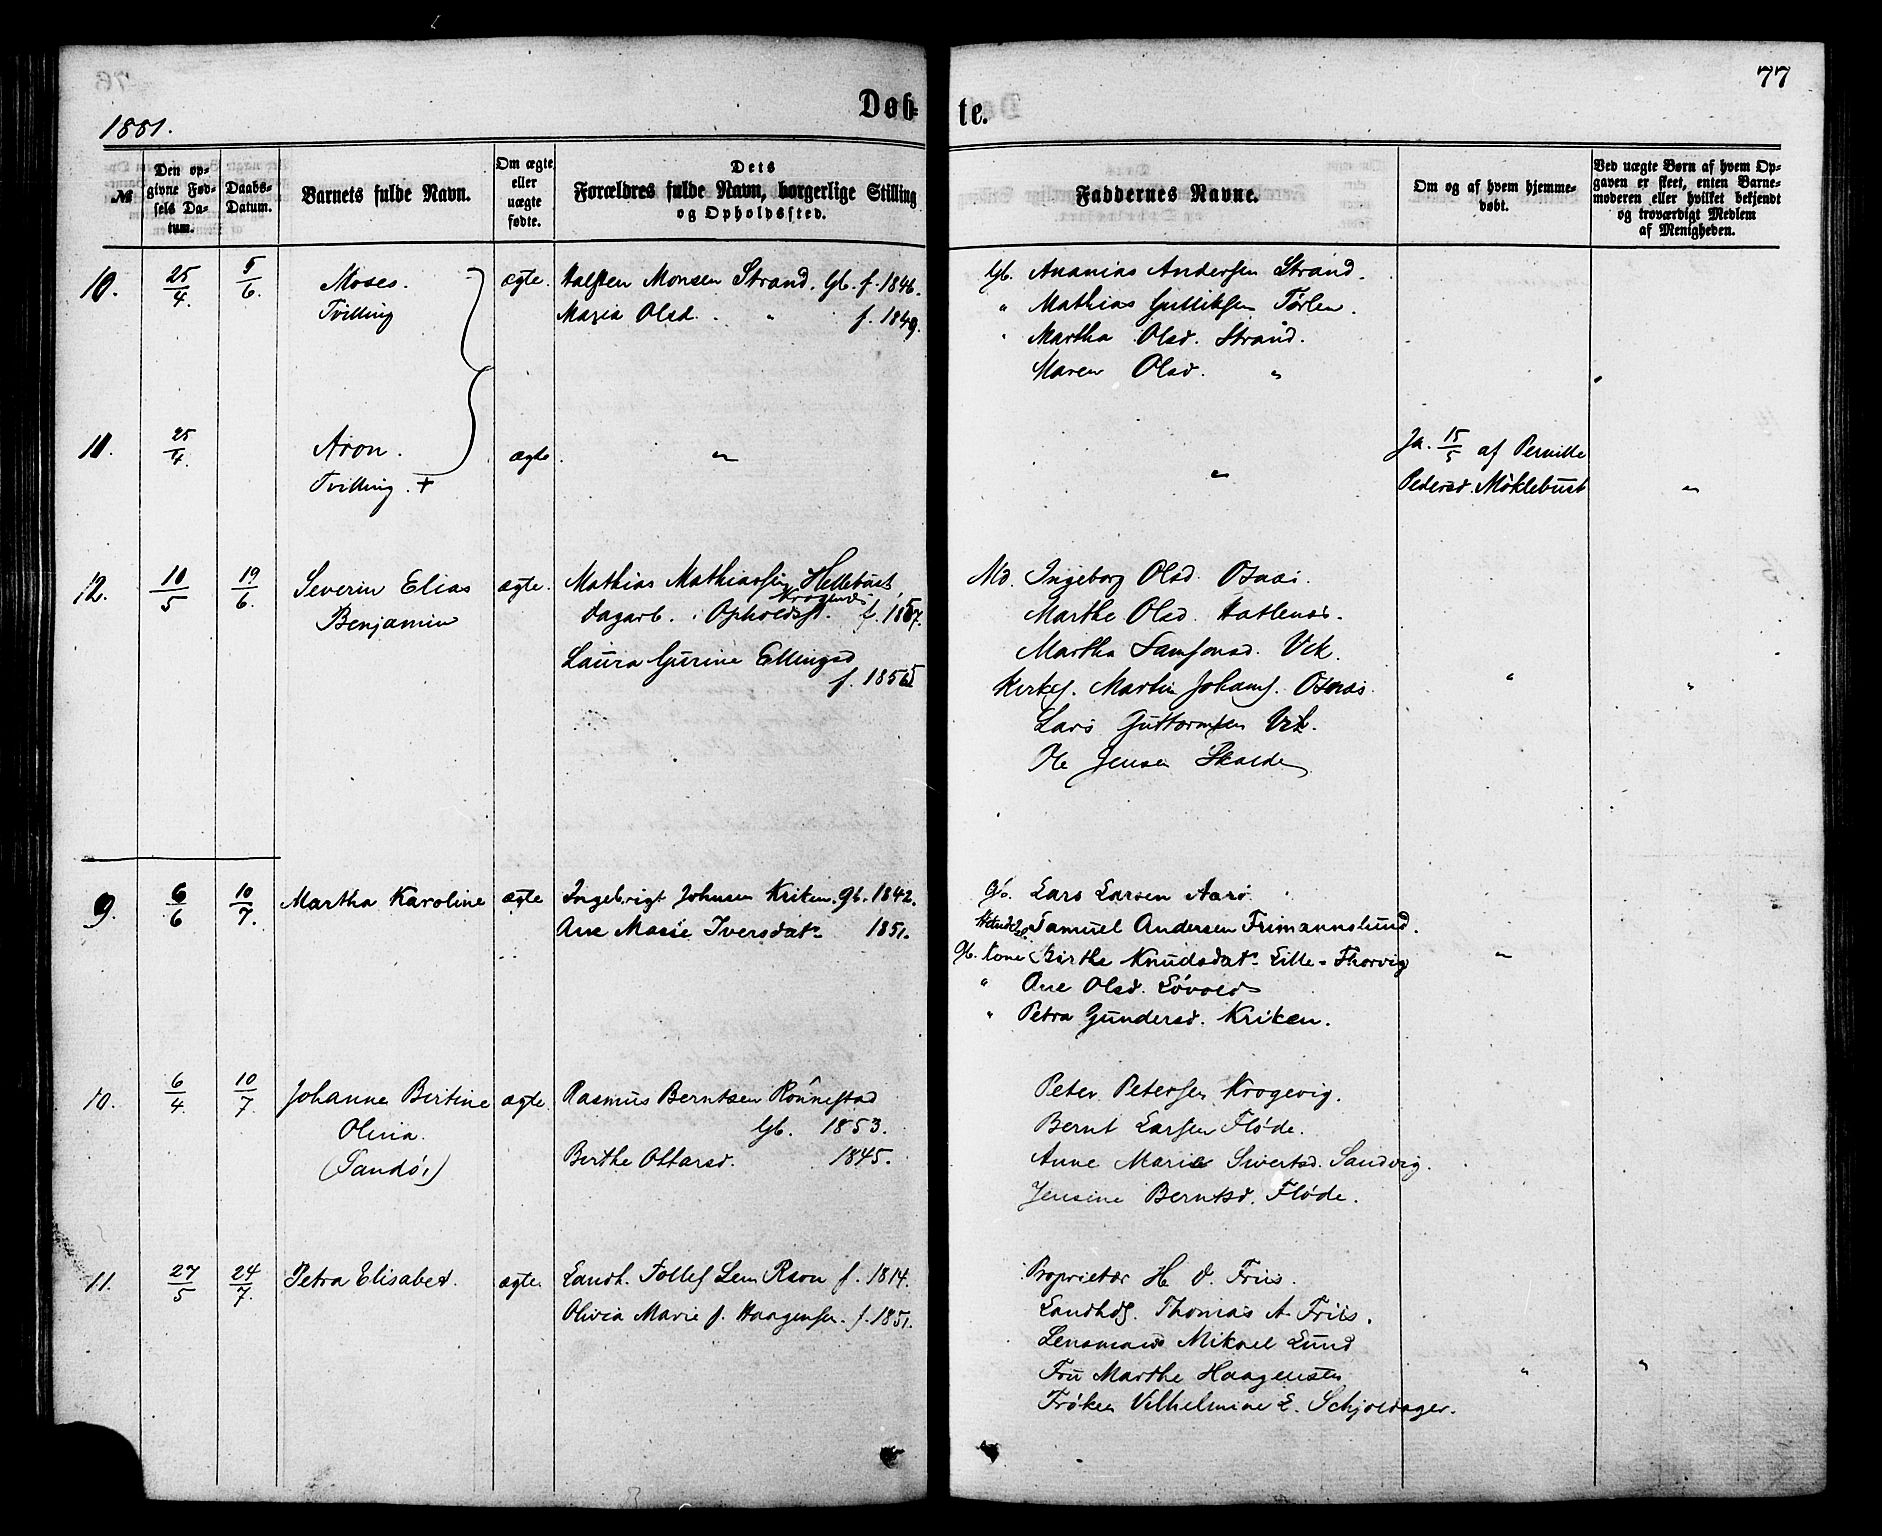 77
1881.
Døb-
te.
№
Den op-
givne Fød-
sels Da-
tum.
Daabs-
Datum.
Barnets fulde Navn.
Om ægte
eller
uægte
fødte.
Dets
Forældres fulde Navn, borgerlige Stilling
og Opholdssted.
Faddernes Navne.
Om og af hvem hjemme-
døbt.
Ved uægte Børn af hvem Op-
gaven er skeet, enten Barne-
moderen eller hvilket bekjendt
og troværdigt Medlem
af Menigheden.
10. 25/4. 5/6. Moses. ægte. Halsten Monsen Strand. Gb. f. 1846. Gb. Ananias Andersen Strand.
Tvilling Maria Olsd. " f. 1849. " Mathias Gulliksen
" Martha Olsd. Strand.
Maren Olsd. "
11. 25/4. Aron. ægte " " Ja. 15/5 af Pernille
Tvilling. + Pedersd. Møklebust "
12. 10/5 19/6. Severin Elias ægte. Mathias Mathiassen Hellebust, Ingeborg Olsd. Osnæs.
Benjamin dagarb. i Opholdsst. f. 1857. Marthe Olsd. Hatlenæs.
Laura Gurine Ellingsd Martha Samsonsd. Vik.
f. 1855 Kirkes. Martin Johans. Osnæs. " "
Lars Guttormsen Vik.
Ole Jensen
9. 6/6 10/7. Martha Karoline ægte Ingebrigt Johnsen Kriken. Gb. 1842. Gb. Lars Larsen Aarø.
Ane Marie Iversdatr 1851. Samuel Andersen Frimannslund.
Gb. kone Birthe Knudsdatr Lille-Thorvig "
" Ane Olsd. Løvold
" Petra Gundersd. Kriken.
10. 6/4 10/7. Johanne Bertine ægte. Rasmus Berntsen Rønnestad Peter Petersen Krogevig.
Olivia. Gb. 1853. Bernt Larsen Fløde.
(Tandø,) Berthe Ottarsd. 1845. Anne Marie Sivertsd. Sandvig.
Jensine Berntsd. Fløde.
11. 27/5 24/7. Petra Elisabet. ægte. Landh. f. 1814. Proprietær H. Friis.
Olivia Marie f. Haagensen. f. 1851. Landhdl. Thomas A. Friis.
Lensmand Mikael Lund
Fru Marthe Haagensen " "
Frøken Vilhelmine E. Schjoldager.